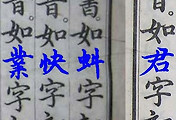 如君字
如蚪字
音如快字
音如業字